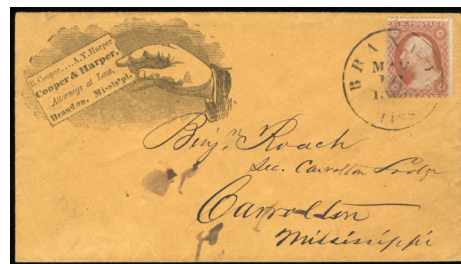 B. Cooper....A.Y. Harper
Cooper & Harper,
Attorneys at Law,
Brandon, Missis'pi.
U.S. POSTAGE
BRAN
Benj. n Roach
Sec. Carrolton Lodge
Carrolton
Mississippi